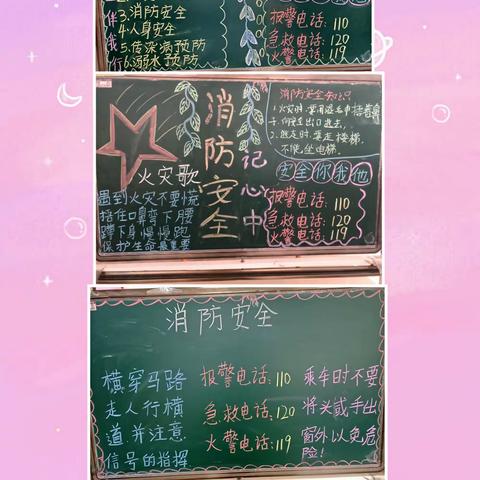 伴 3.消防安全
4.人身安全
我 5.传染病预防
行 6.溺水预防
报警电话: 110
急救电话: 120
火警电话: 119
消防安全
记心中
火灾歌
遇到火灾不要慌
捂住口鼻弯下腰
蹲下身慢慢跑
保护生命最重要
消防安全知识
1.火灾时,要用湿毛巾捂着鼻
子,向安全出口逃去。
2.逃走时,要走楼梯,
不能坐电梯。
安全你我他
报警电话: 110
急救电话: 120
火警电话: 119
消防安全
横穿马路
走人行横
道,并注意
信号的指挥
报警电话: 110
急救电话: 120
火警电话: 119
乘车时不要
将头或手出
窗外以免危
险!